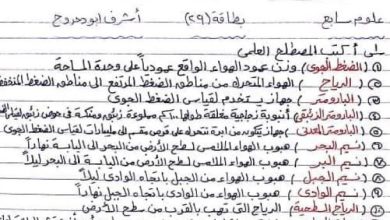 علوم سابع بطاقة (٢٩) أشرف أبو حدروج
س١ أكتب المصطلح العلمي
(١) (الضغط الجوي) وزن عمود الهواء الواقع عمودياً على وحدة المساحة
(٢) (الرياح) الهواء المتحرك من مناطق الضغط المرتفع الى مناطق الضغط المنخفض
(٣) (البارومتر) جهاز يستخدم لقياس الضغط الجوي
(٤) (البارومتر الزئبقي) أنبوبة زجاجية مغلقة طولها مملوءة زئبق ومنكسة في حوض زئبق
(٥) (البارومتر المعدني) جهاز يتكون من ابرة تتحرك على قرص مقسم الى مليبارات لقياس الضغط الجوي
(٦) (نسيم البحر) هبوب الهواء الملامس لسطح الأرض من البحر الى اليابسة نهاراً
(٧) (نسيم البر) هبوب الهواء الملامس لسطح الأرض من اليابسة الى البحر ليلاً
(٨) (نسيم الجبل) هبوب الهواء من الجبل باتجاه الوادي ليلاً
(٩) (نسيم الوادي) هبوب الهواء من الوادي باتجاه الجبل نهاراً
(١٠) (الرياح السطحية) الرياح التي تهب بالقرب من سطح الأرض